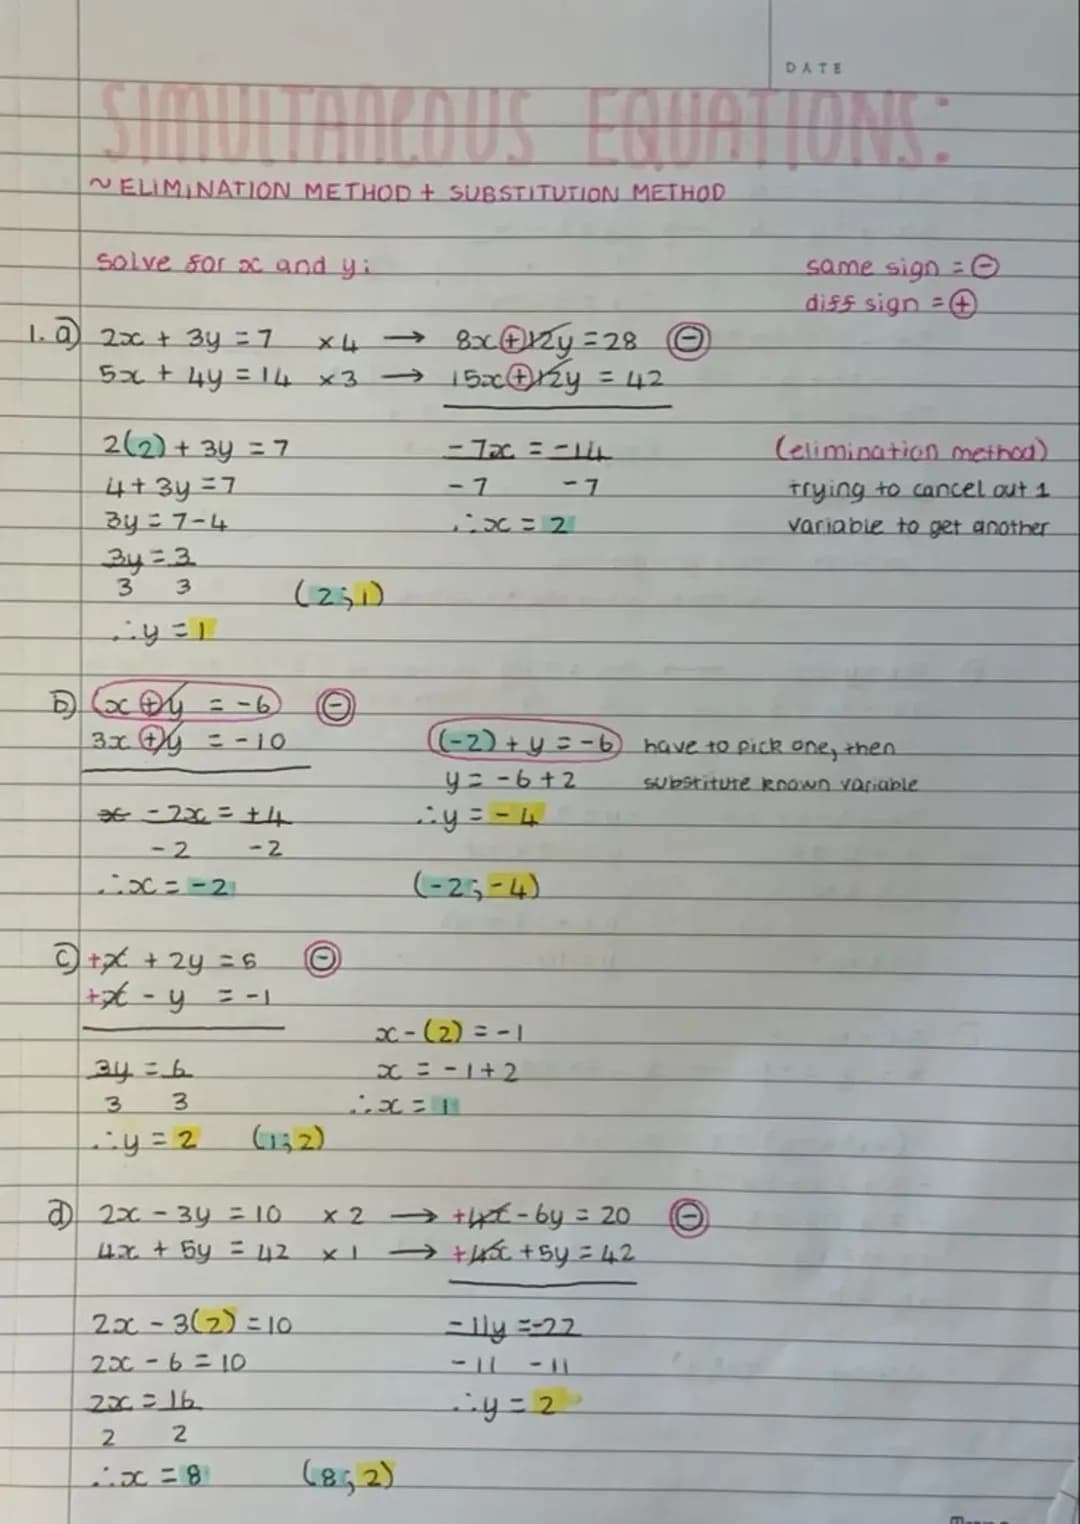 DATE
SIMULTANEOUS EQUATIONS:
~ ELIMINATION METHOD + SUBSTITUTION METHOD
solve for x and y:
same sign = ⊖
diff sign = ⊕
1. a) 2x + 3y = 7 ×4 → 8x ⊕ 12y = 28 ⊖
5x + 4y = 14 ×3 → 15x ⊕ 12y = 42
2(2) + 3y = 7 -7x = -14 (elimination method)
4 + 3y = 7 -7 -7 trying to cancel out 1
3y = 7 - 4 ∴ x = 2 variable to get another
3y = 3
3 3 (2;1)
∴ y = 1
b) x ⊕ y = -6 ⊖
3x ⊕ y = -10 (-2) + y = -6 have to pick one, then
y = -6 + 2 substitute known variable
-2x = +4 ∴ y = -4
-2 -2
∴ x = -2 (-2;-4)
c) +x + 2y = 5 ⊖
+x - y = -1
x - (2) = -1
3y = 6 x = -1 + 2
3 3 ∴ x = 1
∴ y = 2 (1;2)
d) 2x - 3y = 10 ×2 → +4x - 6y = 20 ⊖
4x + 5y = 42 ×1 → +4x + 5y = 42
2x - 3(2) = 10 -11y = -22
2x - 6 = 10 -11 -11
2x = 16 ∴ y = 2
2 2
∴ x = 8 (8;2)